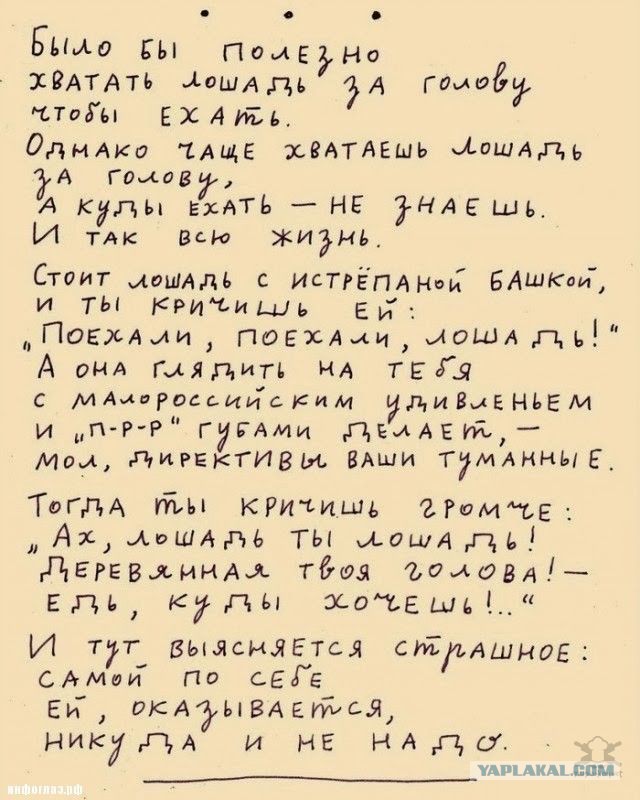 Было бы полезно
хватать лошадь за голову
чтобы ехать.
Однако чаще хватаешь лошадь
за голову,
а куды ехать — не знаешь.
И так всю жизнь.
Стоит лошадь с истрёпаной башкой,
и ты кричишь ей:
„Поехали, поехали, лошадь!“
А она глядить на тебя
с малороссийским удивленьем
и „п-р-р“ губами делает, —
мол, директивы ваши туманные.
Тогда ты кричишь громче:
„Ах, лошадь ты лошадь!
Деревянная твоя голова! —
Едь, куды хочешь!..“
И тут выясняется страшное:
самой по себе
ей, оказывается,
никуда и не надо.
инфоглаз.рф
YAPLAKAL.COM